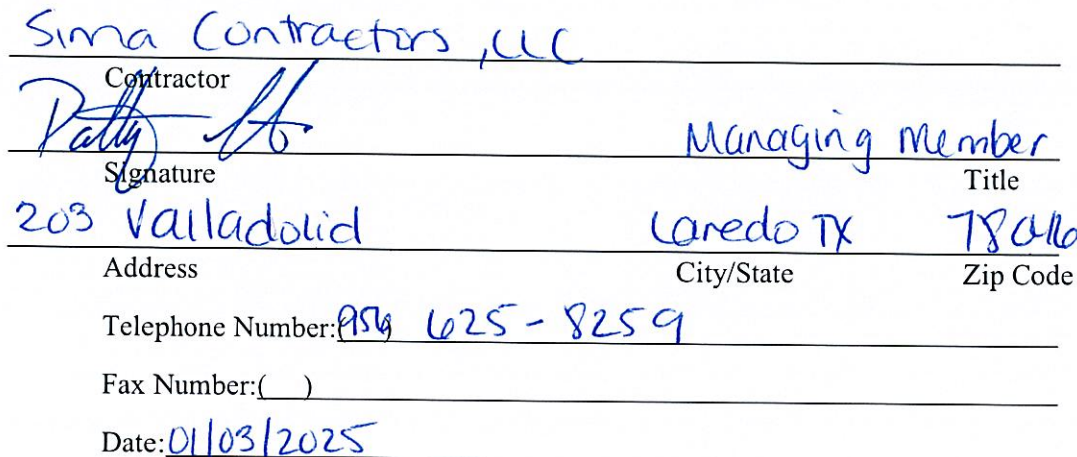 Sima Contractors, LLC
Contractor
Patty
Signature
Managing Member
Title
203 Valladolid Laredo TX 78046
Address City/State Zip Code
Telephone Number:(956) 625-8259
Fax Number:( )
Date:01/03/2025